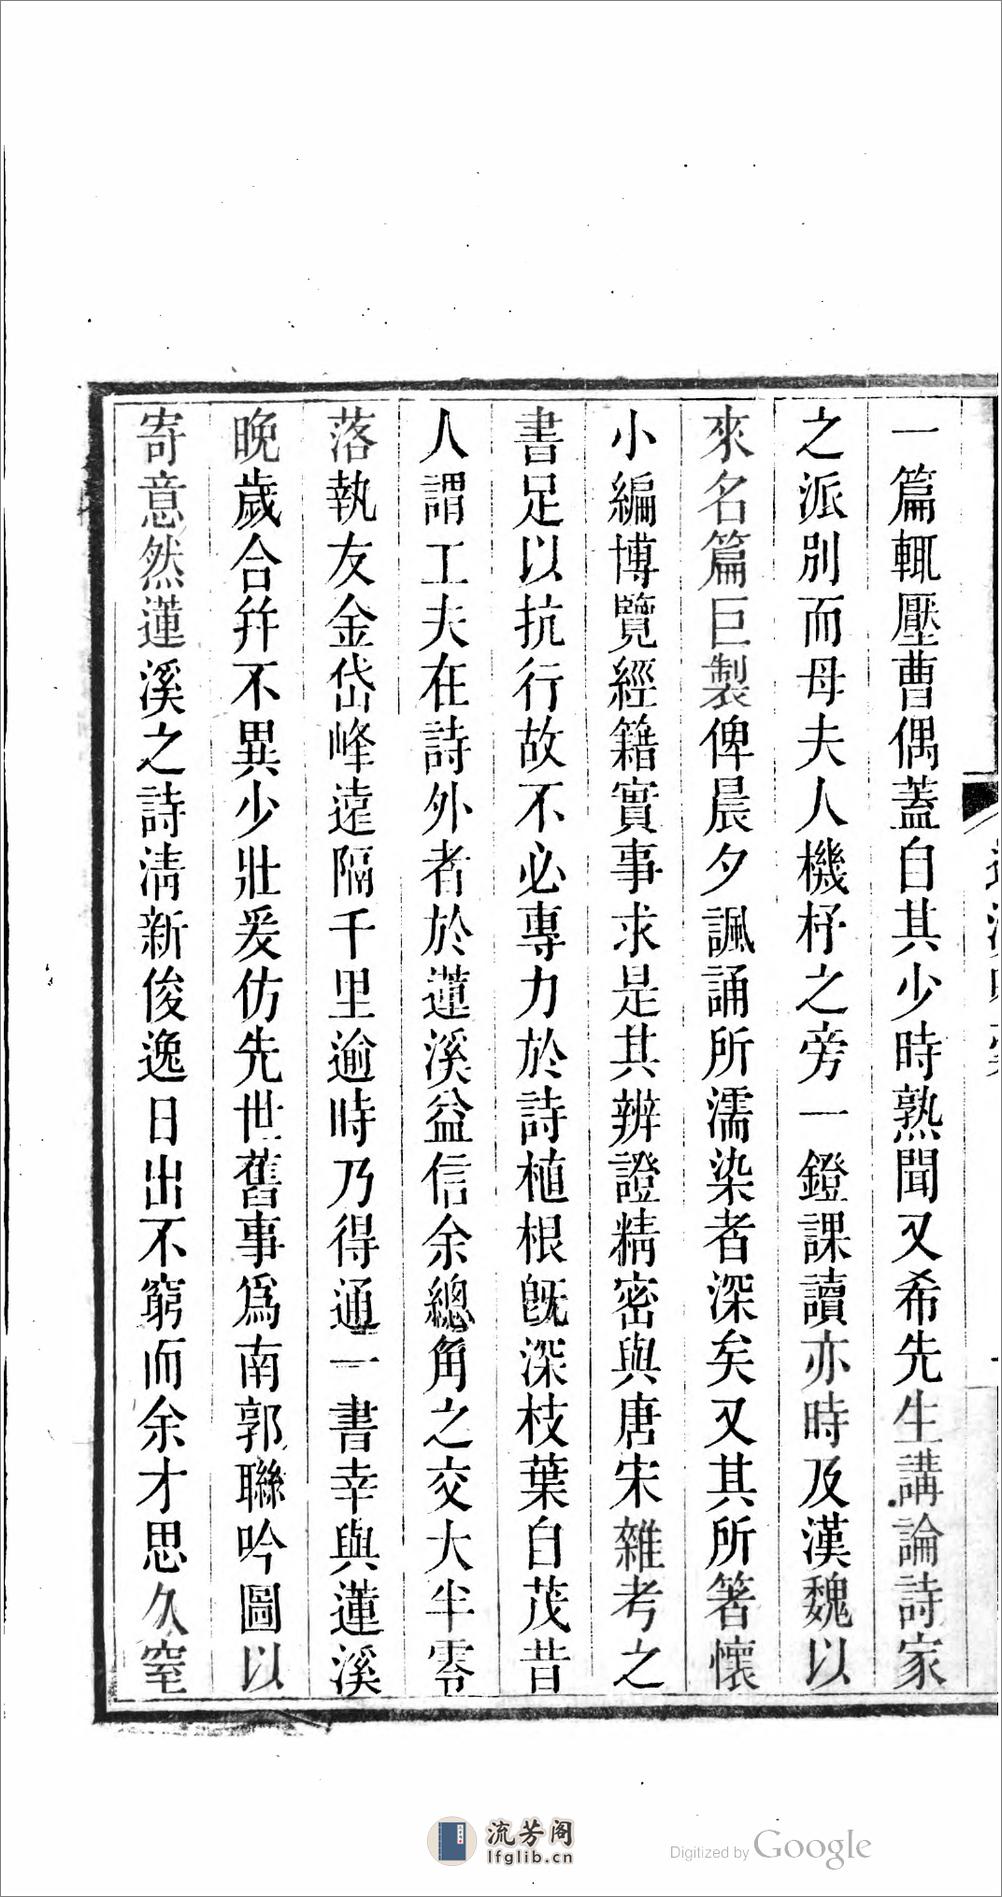 一篇輒壓曹偶蓋自其少時熟聞又希先生講論詩家
之派別而母夫人機杼之旁一鐙課讀亦時及漢魏以
來名篇巨製俾晨夕諷誦所濡染者深矣又其所箸懷
小編博覽經籍實事求是其辨證精密與唐宋雜考之
書足以抗行故不必專力於詩植根旣深枝葉自茂昔
人謂工夫在詩外者於蓮溪益信余總角之交大半零
落執友金岱峰遠隔千里逾時乃得通一書幸與蓮溪
晚歲合幷不異少壯爰仿先世舊事爲南郭聯吟圖以
寄意然蓮溪之詩清新俊逸日出不窮而余才思久窒
流芳阁
lfglib.cn
Digitized by Google